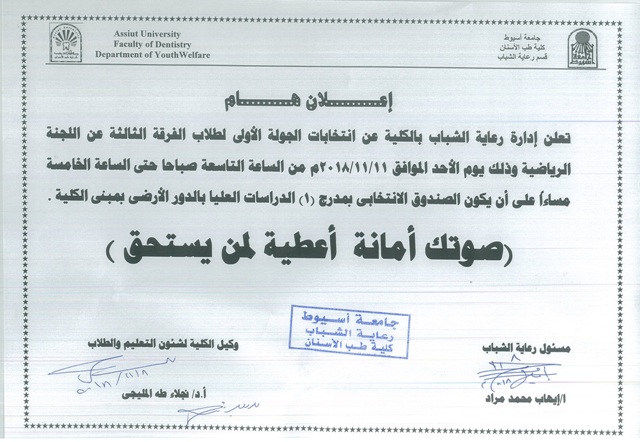 Assiut University
Faculty of Dentistry
Department of YouthWelfare
جامعة أسيوط
كلية طب الأسنان
قسم رعاية الشباب
إعـــــــلان هـــــــام
تعلن إدارة رعاية الشباب بالكلية عن انتخابات الجولة الأولى لطلاب الفرقة الثالثة عن اللجنة
الرياضية وذلك يوم الأحد الموافق ٢٠١٨/١١/١١م من الساعة التاسعة صباحا حتى الساعة الخامسة
مساءاً على أن يكون الصندوق الانتخابى بمدرج (١) الدراسات العليا بالدور الأرضى بمبنى الكلية .
(صوتك أمانة أعطية لمن يستحق )
جامعة أسيوط
رعاية الشباب
كلية طب الأسنان
مسئول رعاية الشباب
أ/إيهاب محمد مراد
وكيل الكلية لشئون التعليم والطلاب
أ.د/ نجلاء طه المليجى